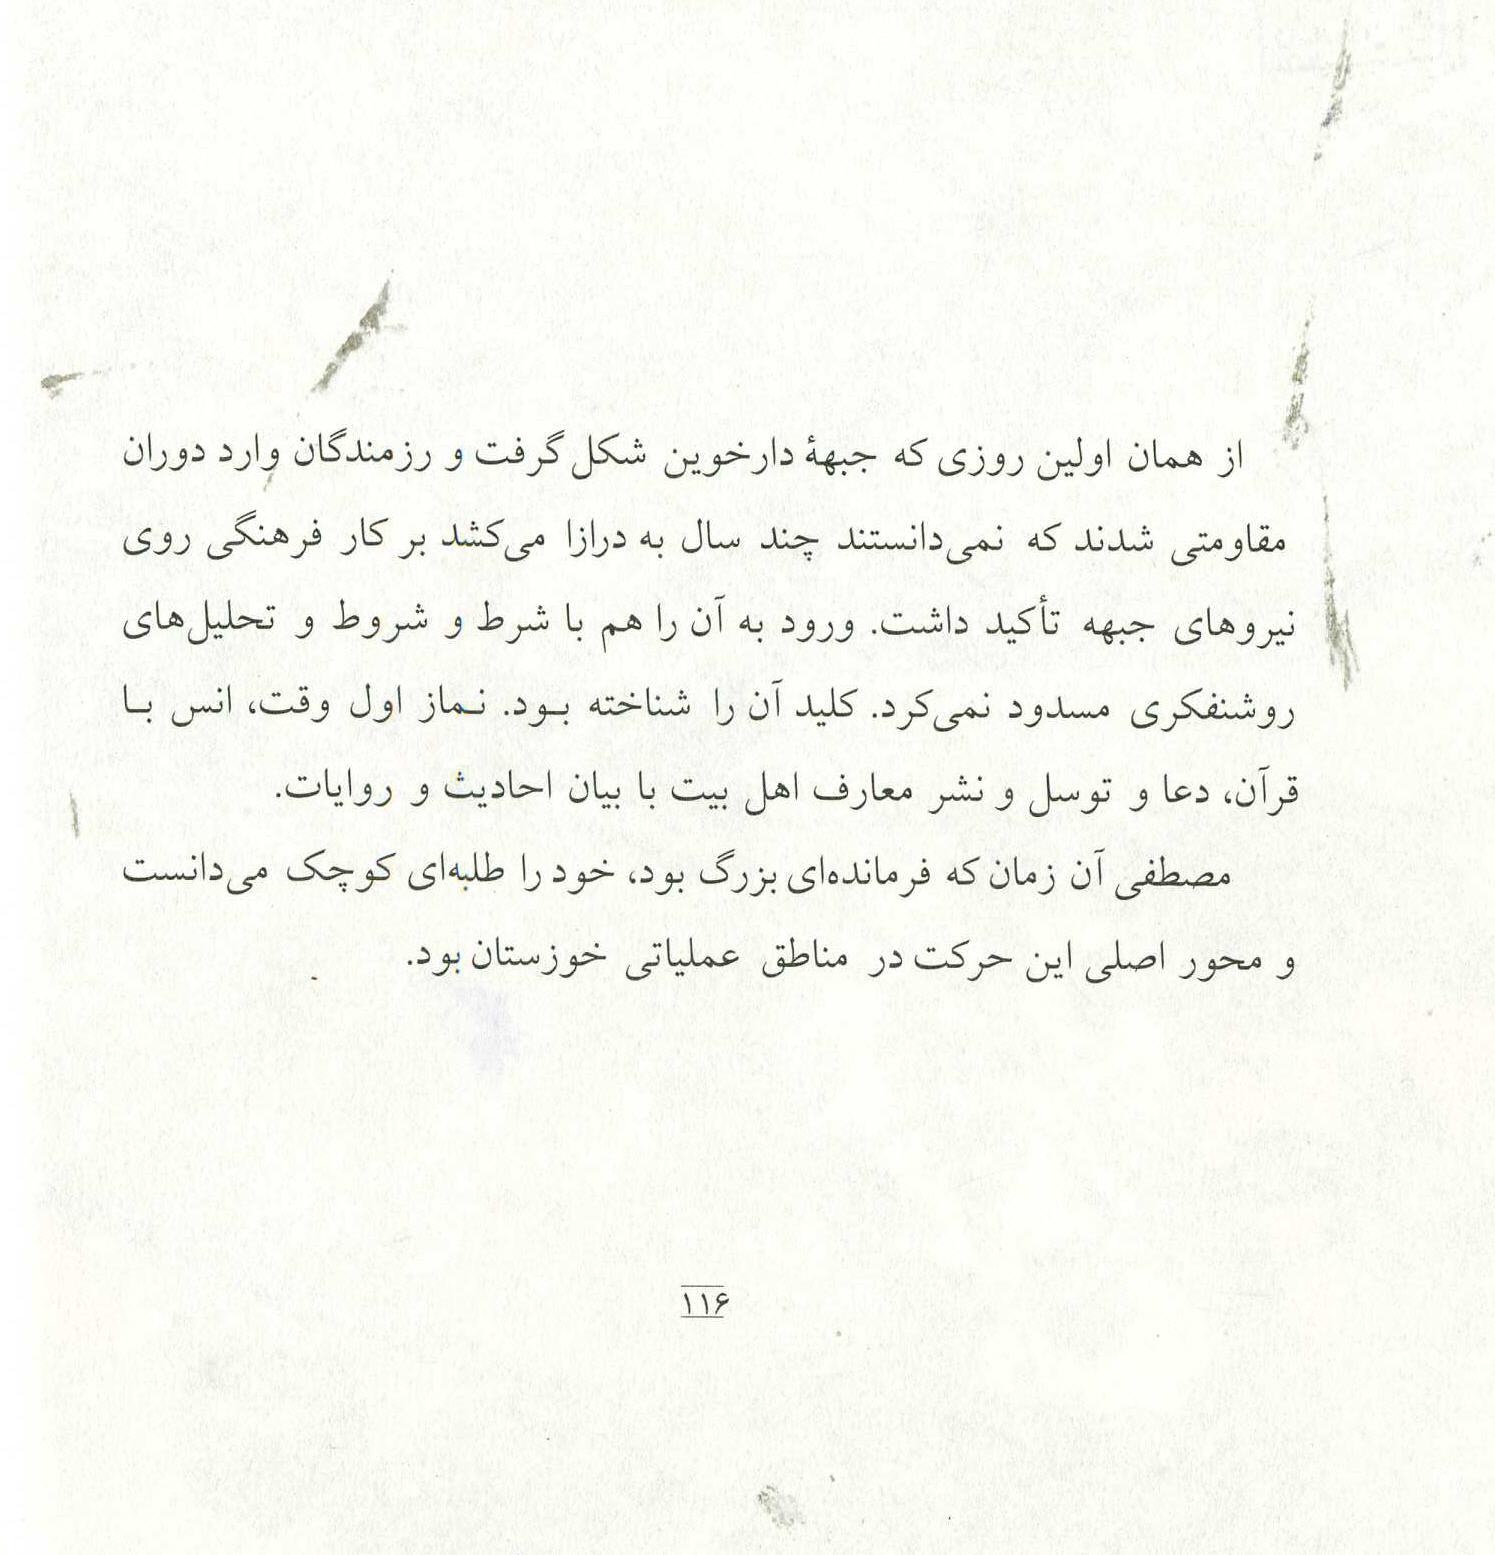 از همان اولین روزی که جبههٔ دارخوین شکل گرفت و رزمندگان وارد دوران
مقاومتی شدند که نمی‌دانستند چند سال به درازا می‌کشد بر کار فرهنگی روی
نیروهای جبهه تأکید داشت. ورود به آن را هم با شرط و شروط و تحلیل‌های
روشنفکری مسدود نمی‌کرد. کلید آن را شناخته بود. نماز اول وقت، انس با
قرآن، دعا و توسل و نشر معارف اهل بیت با بیان احادیث و روایات.
مصطفی آن زمان که فرمانده‌ای بزرگ بود، خود را طلبه‌ای کوچک می‌دانست
و محور اصلی این حرکت در مناطق عملیاتی خوزستان بود.
۱۱۶